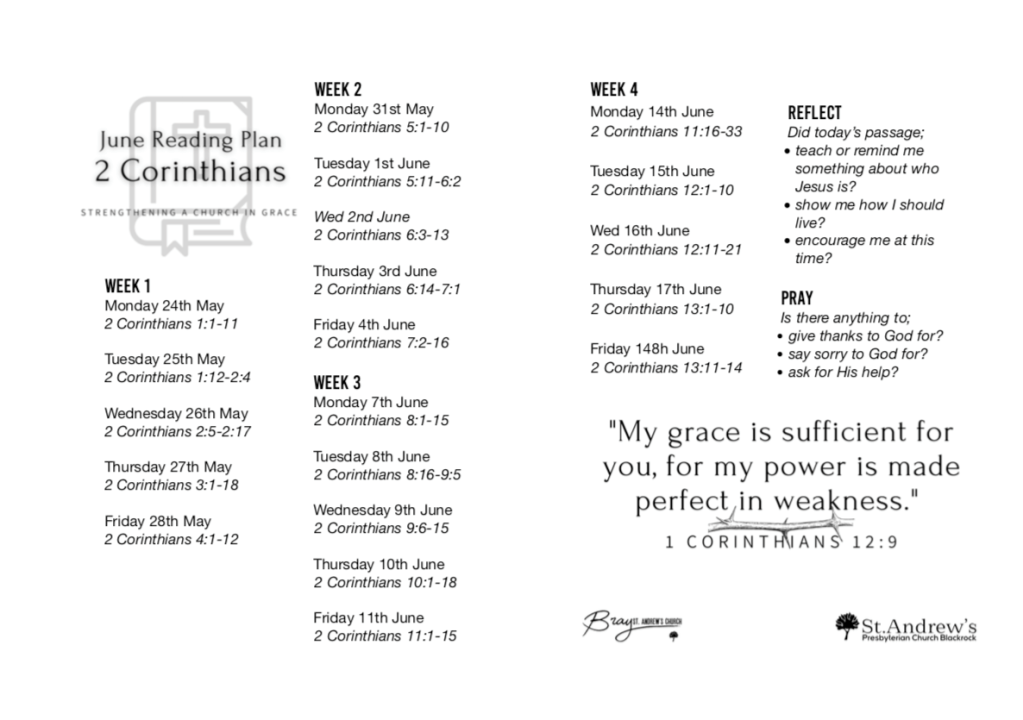 June Reading Plan
2 Corinthians
STRENGTHENING A CHURCH IN GRACE
WEEK 1
Monday 24th May
2 Corinthians 1:1-11
Tuesday 25th May
2 Corinthians 1:12-2:4
Wednesday 26th May
2 Corinthians 2:5-2:17
Thursday 27th May
2 Corinthians 3:1-18
Friday 28th May
2 Corinthians 4:1-12
WEEK 2
Monday 31st May
2 Corinthians 5:1-10
Tuesday 1st June
2 Corinthians 5:11-6:2
Wed 2nd June
2 Corinthians 6:3-13
Thursday 3rd June
2 Corinthians 6:14-7:1
Friday 4th June
2 Corinthians 7:2-16
WEEK 3
Monday 7th June
2 Corinthians 8:1-15
Tuesday 8th June
2 Corinthians 8:16-9:5
Wednesday 9th June
2 Corinthians 9:6-15
Thursday 10th June
2 Corinthians 10:1-18
Friday 11th June
2 Corinthians 11:1-15
WEEK 4
Monday 14th June
2 Corinthians 11:16-33
Tuesday 15th June
2 Corinthians 12:1-10
Wed 16th June
2 Corinthians 12:11-21
Thursday 17th June
2 Corinthians 13:1-10
Friday 148h June
2 Corinthians 13:11-14
REFLECT
Did today's passage;
• teach or remind me
something about who
Jesus is?
• show me how I should
live?
• encourage me at this
time?
PRAY
Is there anything to;
• give thanks to God for?
• say sorry to God for?
• ask for His help?
"My grace is sufficient for
you, for my power is made
perfect in weakness."
1 CORINTHIANS 12:9
Bray ST. ANDREW'S CHURCH
St.Andrew's
Presbyterian Church Blackrock